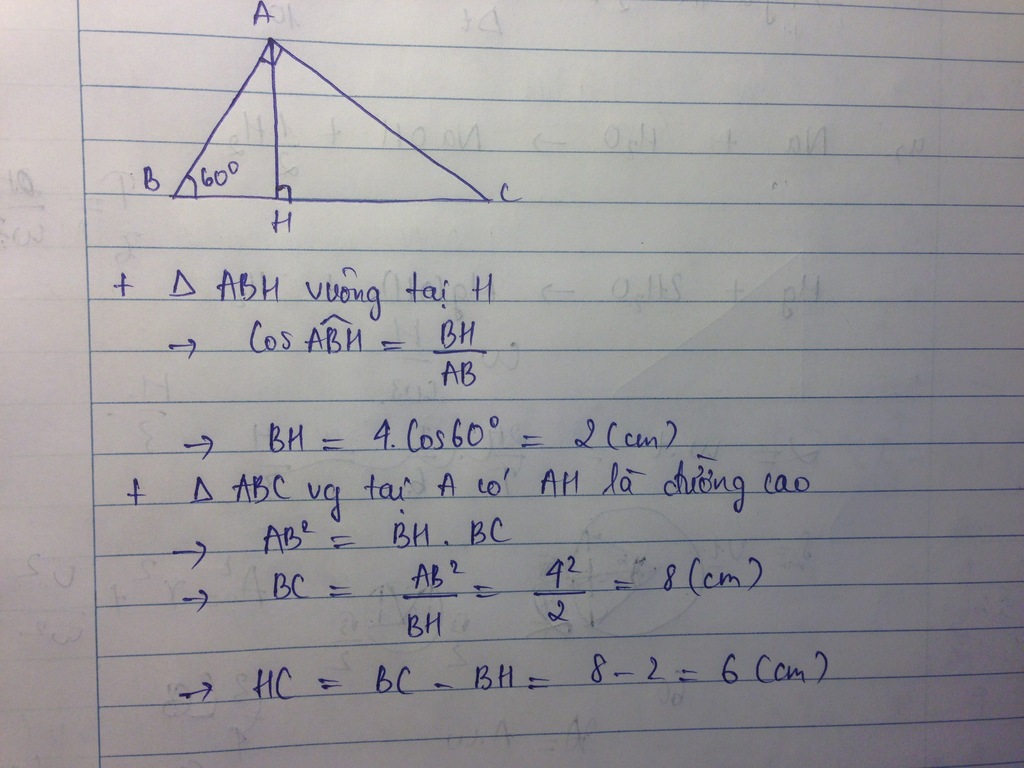 A
B 60°
H
C
+ Δ ABH vuông tại H
→ Cos \widehat{ABH} = \frac{BH}{AB}
→ BH = 4.Cos60° = 2 (cm)
+ Δ ABC vg tại A có AH là đường cao
→ AB² = BH . BC
→ BC = \frac{AB²}{BH} = \frac{4²}{2} = 8 (cm)
→ HC = BC - BH = 8 - 2 = 6 (cm)